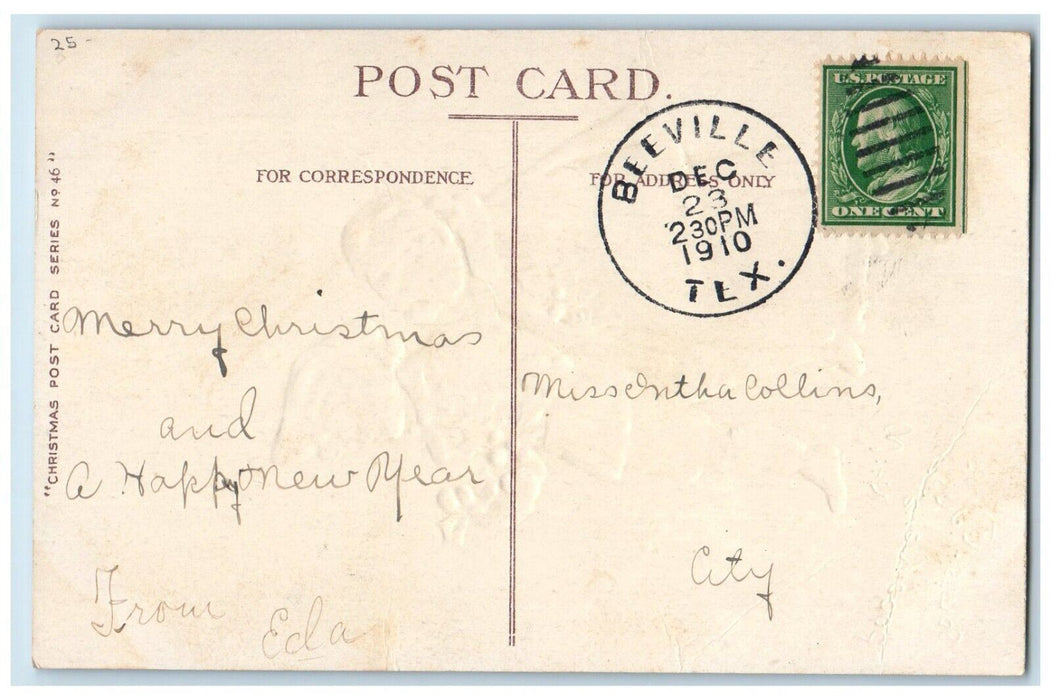 25-
POST CARD.
FOR CORRESPONDENCE.
FOR ADDRESS ONLY
"CHRISTMAS POST CARD SERIES Nº 46"
U.S. POSTAGE
ONE CENT
BEEVILLE
DEC
23
230PM
1910
TEX.
Merry Christmas
and
A Happy New Year
From
Eda
Miss Intha Collins,
City